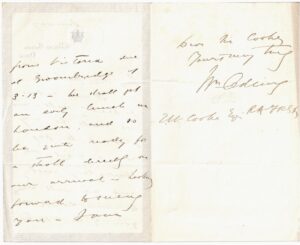 from Victoria due
at Groombridge at
3-13 - we shall get
an early lunch in
London and so
be quite ready for
a stroll directly on
our arrival - looking
forward to seeing
you - I am
Dear Mr Cooke
Yours very truly
Wm
E W Cooke Esq RA FRS